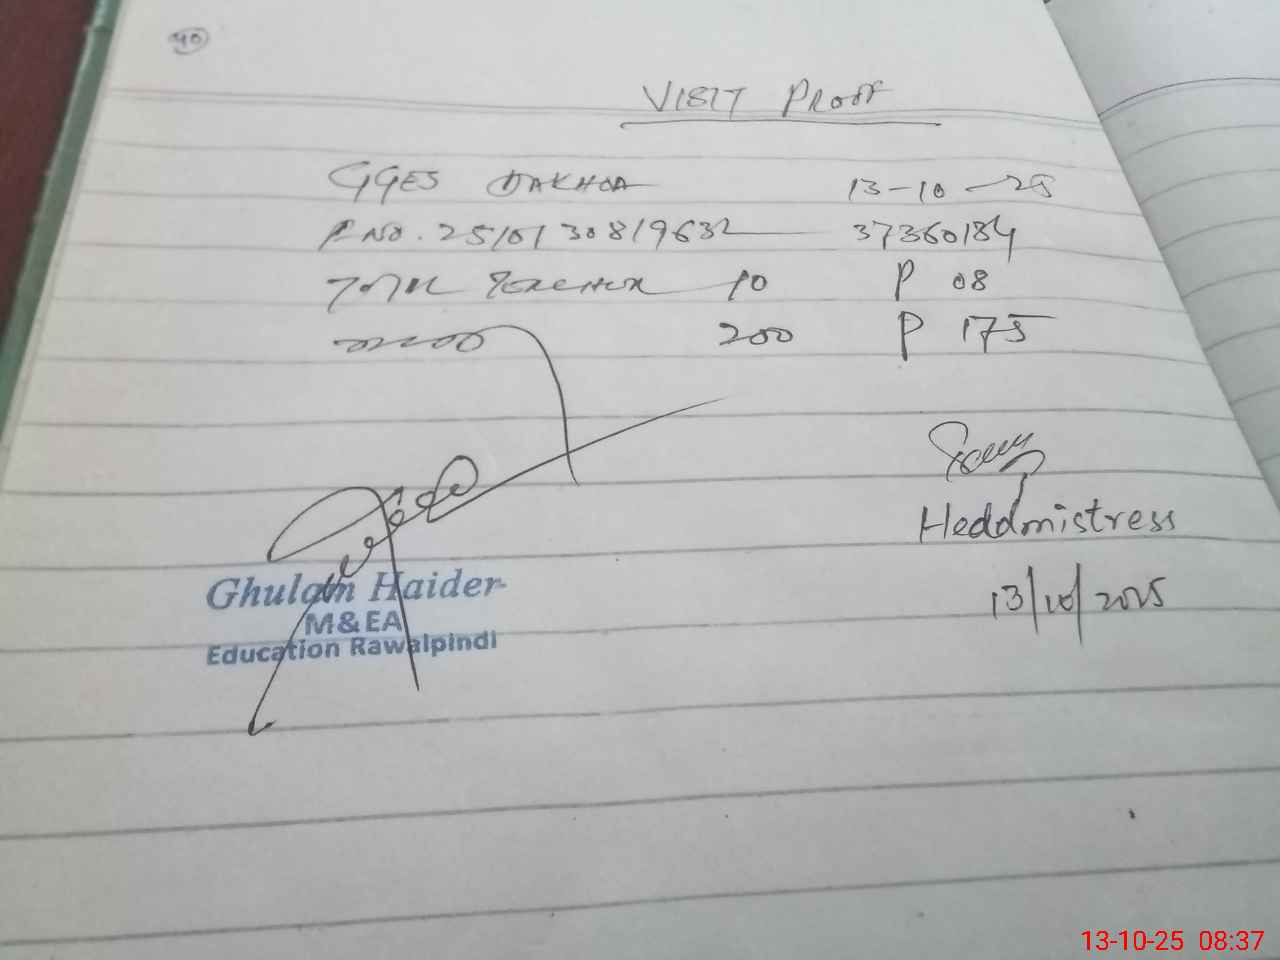 40
VISIT PROOF
GGES DAKHOA 13-10-25
P.NO. 2510130819632 37360184
TOTAL TEACHER 10 P 08
200 P 175
Headmistress
13/10/2025
Ghulam Haider
M&EA
Education Rawalpindi
13-10-25 08:37